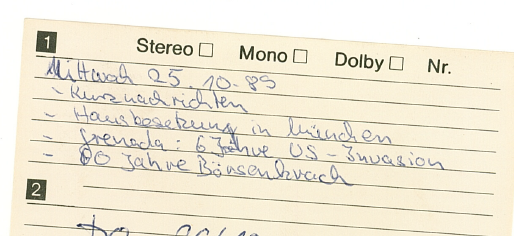 1 Stereo □ Mono □ Dolby □ Nr.
Mittwoch 25.10.89
- Kurznachrichten
- Hausbesetzung in München
- Grenada: 6 Jahre US-Invasion
- 60 Jahre Börsenkrach
2